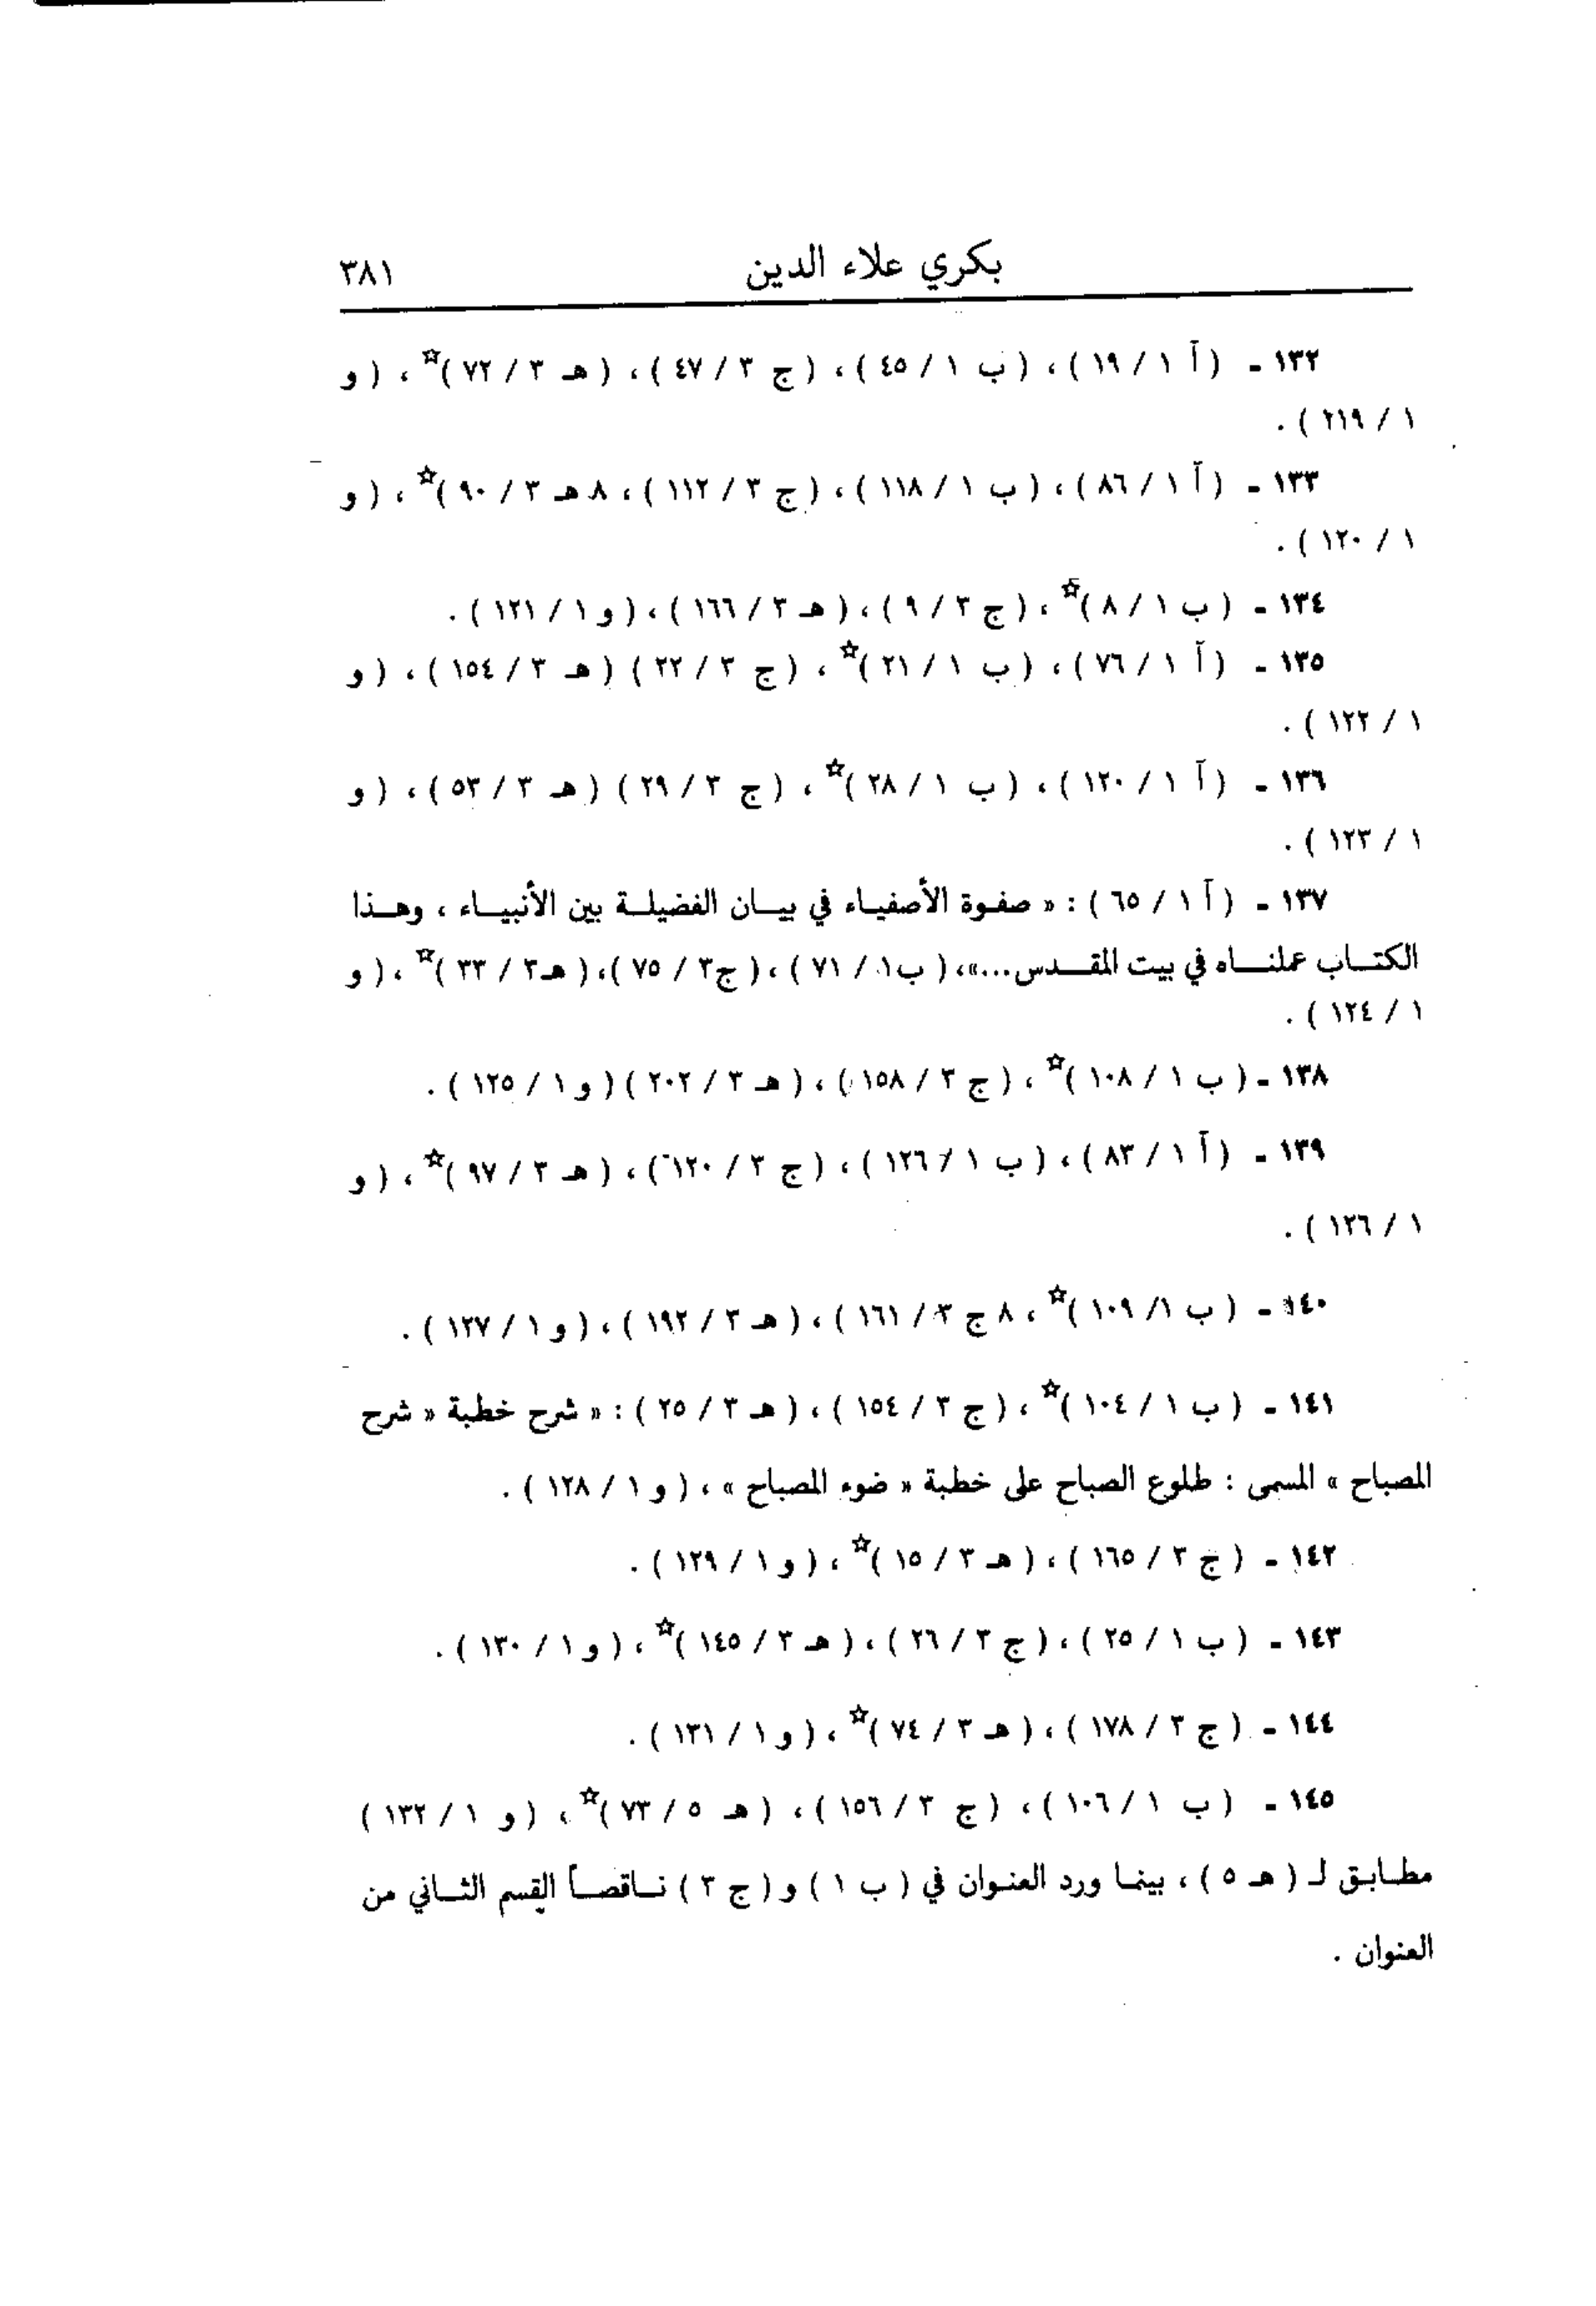 بكري علاء الدين ٣٨١
١٣٢ - ( آ ١ / ١٩ ) ، ( ب ١ / ٤٥ ) ، ( ج ٣ / ٤٧ ) ، ( هـ ٣ / ٧٢ )☆ ، ( و
١ / ٢١٩ ) .
١٣٣ - ( آ ١ / ٨٦ ) ، ( ب ١ / ١١٨ ) ، ( ج ٣ / ١١٢ ) ، ٨ هـ ٣ / ٩٠ )☆ ، ( و
١ / ١٢٠ ) .
١٣٤ - ( ب ١ / ٨ )☆ ، ( ج ٣ / ٩ ) ، ( هـ ٣ / ١٦٦ ) ، ( و ١ / ١٢١ ) .
١٣٥ - ( آ ١ / ٧٦ ) ، ( ب ١ / ٢١ )☆ ، ( ج ٣ / ٢٢ ) ( هـ ٣ / ١٥٤ ) ، ( و
١ / ١٢٢ ) .
١٣٦ - ( آ ١ / ١٢٠ ) ، ( ب ١ / ٢٨ )☆ ، ( ج ٣ / ٢٩ ) ( هـ ٣ / ٥٣ ) ، ( و
١ / ١٢٣ ) .
١٣٧ - ( آ ١ / ٦٥ ) : « صفوة الأصفياء في بيان الفضيلة بين الأنبياء ، وهذا
الكتاب عملناه في بيت المقدس ...» ، ( ب ١ / ٧١ ) ، ( ج ٣ / ٧٥ ) ، ( هـ ٣ / ٣٣ )☆ ، ( و
١ / ١٢٤ ) .
١٣٨ - ( ب ١ / ١٠٨ )☆ ، ( ج ٣ / ١٥٨ ) ، ( هـ ٣ / ٢٠٢ ) ( و ١ / ١٢٥ ) .
١٣٩ - ( آ ١ / ٨٣ ) ، ( ب ١ / ١٢٦ ) ، ( ج ٣ / ١٢٠ ) ، ( هـ ٣ / ٩٧ )☆ ، ( و
١ / ١٢٦ ) .
١٤٠ - ( ب ١ / ١٠٩ )☆ ، ٨ ج ٣ / ١٦١ ) ، ( هـ ٣ / ١٩٢ ) ، ( و ١ / ١٢٧ ) .
١٤١ - ( ب ١ / ١٠٤ )☆ ، ( ج ٣ / ١٥٤ ) ، ( هـ ٣ / ٢٥ ) : « شرح خطبة « شرح
المصباح » المسمى : طلوع الصباح على خطبة « ضوء المصباح » ، ( و ١ / ١٢٨ ) .
١٤٢ - ( ج ٣ / ١٦٥ ) ، ( هـ ٣ / ١٥ )☆ ، ( و ١ / ١٢٩ ) .
١٤٣ - ( ب ١ / ٢٥ ) ، ( ج ٣ / ٢٦ ) ، ( هـ ٣ / ١٤٥ )☆ ، ( و ١ / ١٣٠ ) .
١٤٤ - ( ج ٣ / ١٧٨ ) ، ( هـ ٣ / ٧٤ )☆ ، ( و ١ / ١٣١ ) .
١٤٥ - ( ب ١ / ١٠٦ ) ، ( ج ٣ / ١٥٦ ) ، ( هـ ٥ / ٧٣ )☆ ، ( و ١ / ١٣٢ )
مطابق لـ ( هـ ٥ ) ، بينما ورد العنوان في ( ب ١ ) و ( ج ٣ ) ناقصاً القسم الثاني من
العنوان .